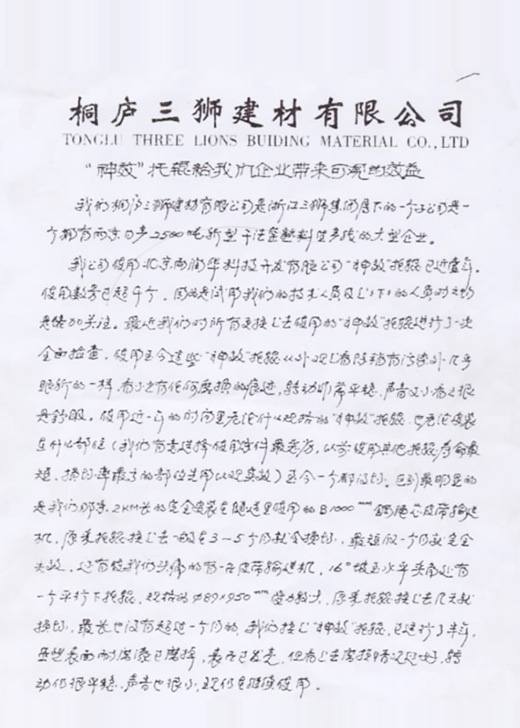 桐庐三狮建材有限公司
TONGLU THREE LIONS BUIDING MATERIAL CO.,LTD
“神效”托辊给我们企业带来可观的效益
我们桐庐三狮建材有限公司是浙江三狮集团属下的一个子公司是一
个拥有两条日产2500吨新型干法窑熟料生产线的大型企业。
我公司使用北京雨润华科技开发有限公司“神效”托辊已近壹年，
使用数量已超千个，因为是试用我们的技术人员及上下的人员对之均
是倍加关注。最近我们对所有更换上去使用的“神效”托辊进行了一次
全面检查，使用至今这些“神效”托辊从外观上看除稍有污染外几乎
跟新的一样，看不出有任何磨损的痕迹，转动非常平稳，声音又小看之很
是舒服。使用近一年的时间里无论什么规格的“神效”托辊，也无论安装
在什么部位（我们有意选择使用条件最恶劣，以前使用其他托辊寿命最
短，换切率最高的部位使用以观其效）至今一个都没切。特别最明显的
是我们那条2KM长的完全安装在隧道里使用的B1000mm钢绳芯皮带输送
机，原来托辊换上去一般在3～5个月就会换切，最短仅一个月就完全
失效，还有使我们头痛的有一台皮带输送机，16°坡至水平夹角处有
一个平行下托辊，规格为Φ89×950mm受力较大，原来托辊换上去几天就
换切，最长也没有超过一个月的，我们换上“神效”托辊，已运行了半年，
虽然表面耐磨漆已磨掉，表面已发亮，但看上去磨损情况还好，转
动仍很平稳，声音也很小，现仍在继续使用。